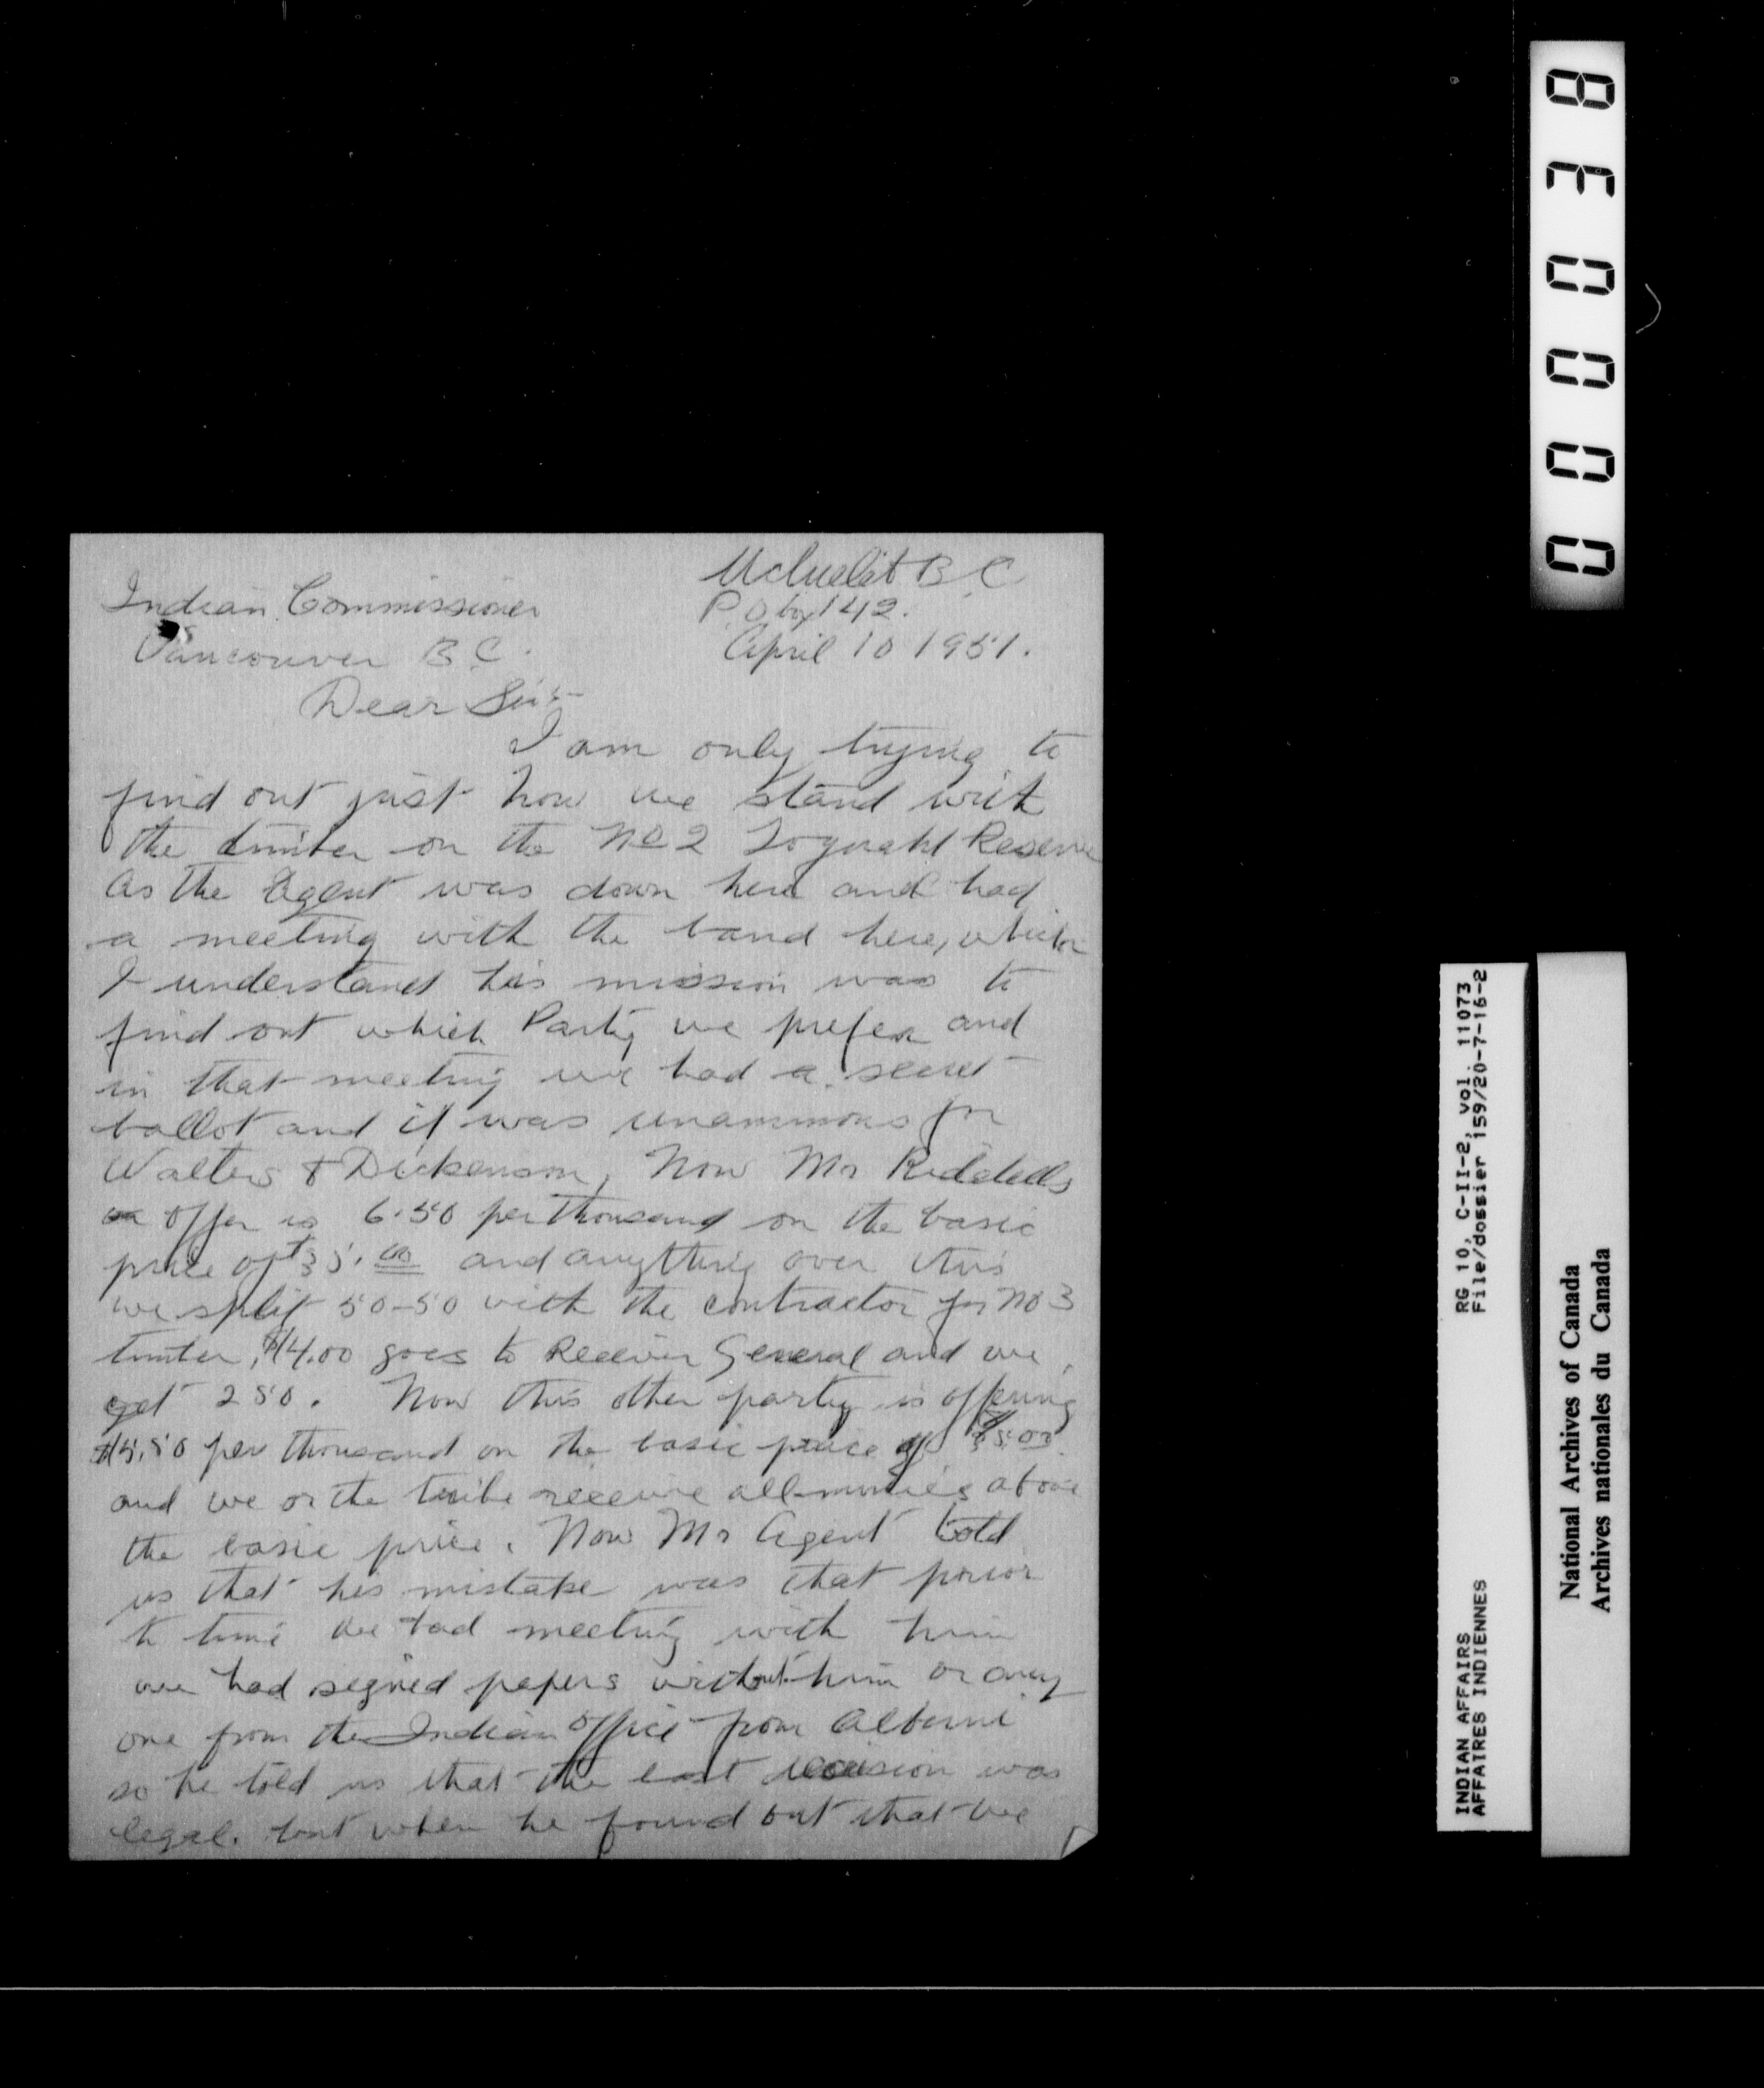 Ucluelet B.C.
P.O box 142.
April 10 1951.
Indian Commissioner
Vancouver B.C.
Dear Sir:-
I am only trying to
find out just how we stand with
the timber on the No 2 Toquaht Reserve
As the Agent was down here and had
a meeting with the band here, which
I understand his mission was to
find out which Party we prefer and
in that meeting we had a secret
ballot and it was unanimous for
Walters & Dickenson, Now Mr Riddells
offer is 6.50 per thousand on the basic
price of $35.00 and anything over this
we split 50-50 with the contractor for No 3
timber, $4.00 goes to Receiver General and we
get 250. Now this other party is offering
$5.50 per thousand on the basic price of
and we or the tribe receive all monies above
the basic price. Now Mr Agent told
us that his mistake was that prior
to time we had meeting with him
we had signed papers without him or any
one from the Indian Office from Alberni
so he told us that the last decision was
legal. but when he found out that we
000038
RG 10, C-II-2, vol. 11073
File/dossier 159/20-7-16-2
INDIAN AFFAIRS
AFFAIRES INDIENNES
National Archives of Canada
Archives nationales du Canada